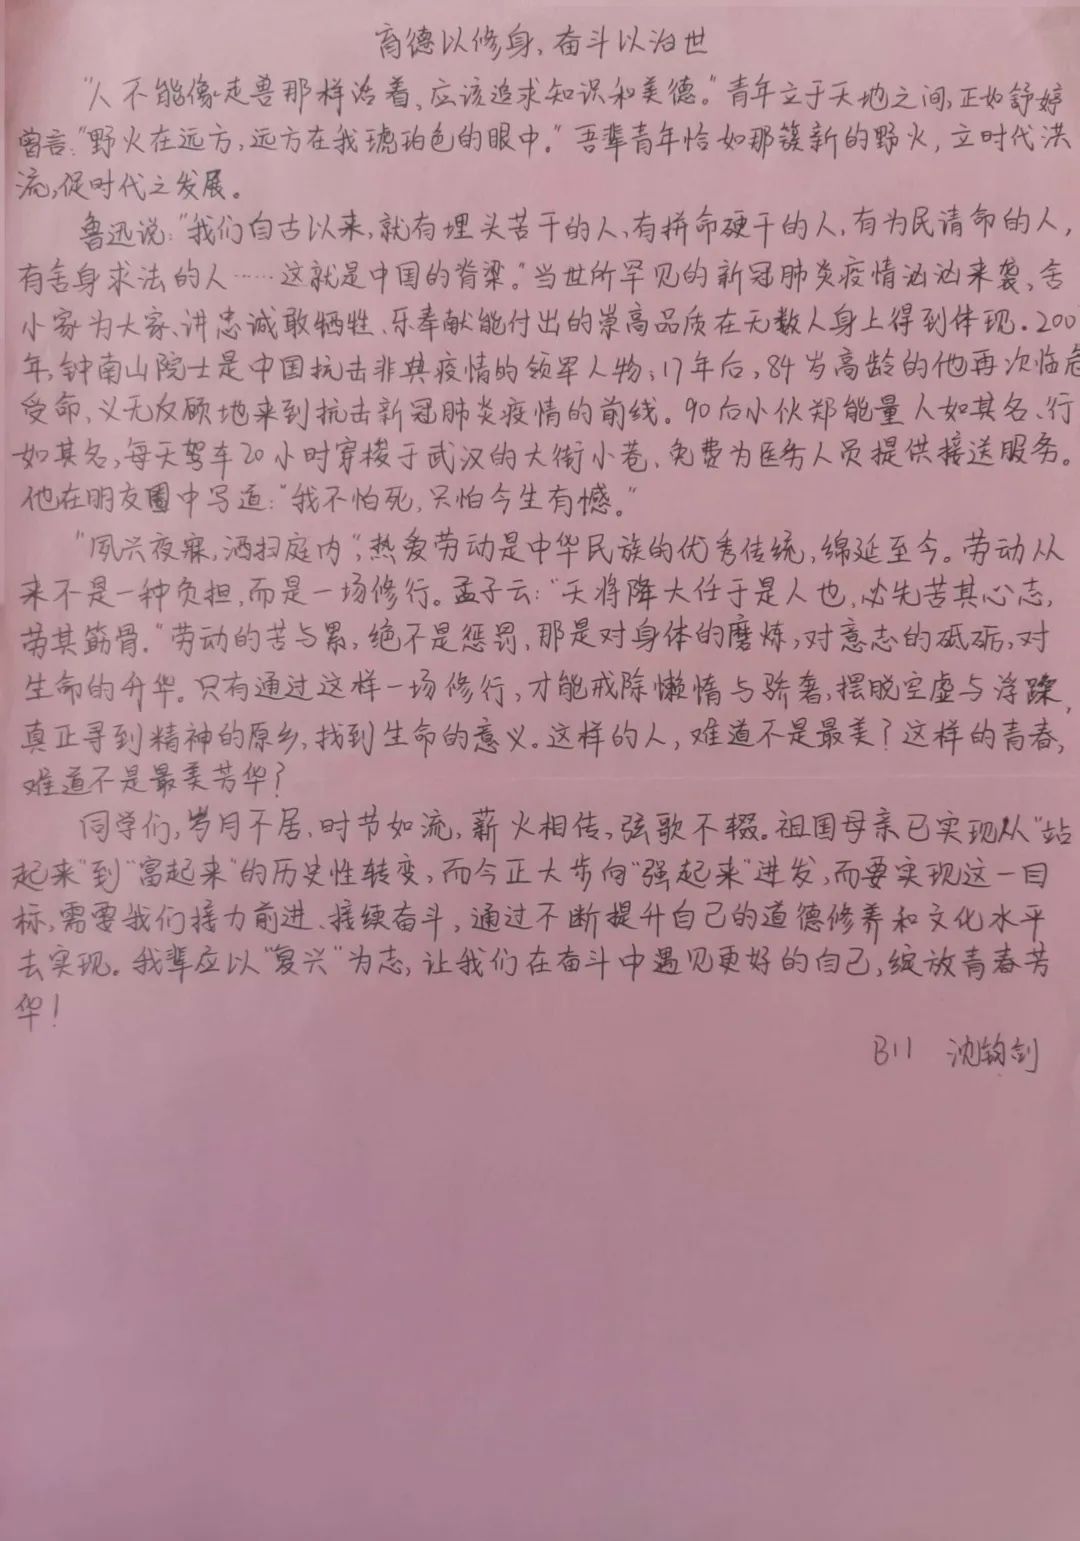 育德以修身,奋斗以治世
"人不能像走兽那样活着、应该追求知识和美德。"青年立于天地之间,正如舒婷
曾言:"野火在远方,远方在我琥珀色的眼中。"吾辈青年恰如那簇新的野火,立时代洪
流,促时代之发展。
鲁迅说:"我们自古以来,就有埋头苦干的人,有拼命硬干的人,有为民请命的人,
有舍身求法的人……这就是中国的脊梁。"当世所罕见的新冠肺炎疫情汹汹来袭、舍
小家为大家、讲忠诚敢牺牲、乐奉献能付出的崇高品质在无数人身上得到体现.200
年,钟南山院士是中国抗击非典疫情的领军人物;17年后,84岁高龄的他再次临危
受命,义无反顾地来到抗击新冠肺炎疫情的前线。90后小伙郑能量人如其名、行
如其名,每天驾车20小时穿梭于武汉的大街小巷、免费为医务人员提供接送服务。
他在朋友圈中写道:"我不怕死,只怕今生有憾。"
"夙兴夜寐,洒扫庭内",热爱劳动是中华民族的优秀传统,绵延至今。劳动从
来不是一种负担,而是一场修行。孟子云:"天将降大任于是人也,必先苦其心志,
劳其筋骨."劳动的苦与累,绝不是惩罚,那是对身体的磨炼,对意志的砥砺,对
生命的升华。只有通过这样一场修行,才能戒除懒惰与骄奢,摆脱空虚与浮躁,
真正寻到精神的原乡,找到生命的意义。这样的人,难道不是最美?这样的青春,
难道不是最美芳华?
同学们,岁月不居、时节如流,薪火相传,弦歌不辍。祖国母亲已实现从"站
起来"到"富起来"的历史性转变,而今正大步向"强起来"进发,而要实现这一目
标,需要我们接力前进、接续奋斗,通过不断提升自己的道德修养和文化水平
去实现。我辈应以"复兴"为志,让我们在奋斗中遇见更好的自己,绽放青春芳
华!
B11 沈钧剑